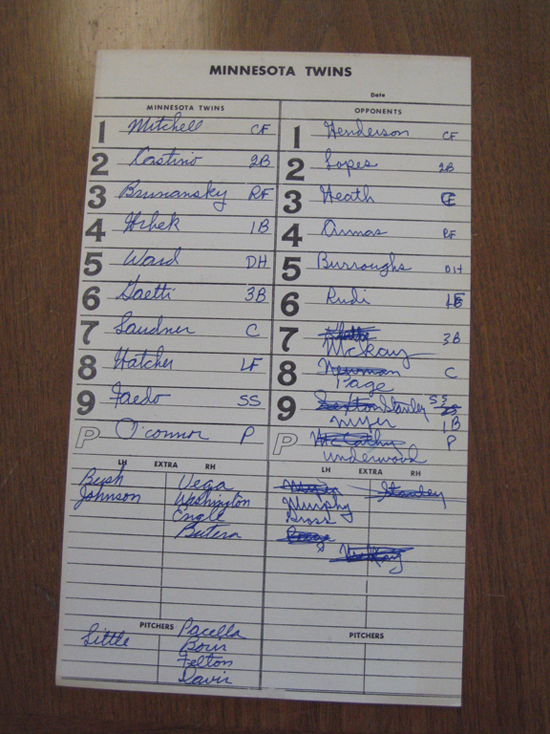 MINNESOTA TWINS
Date
MINNESOTA TWINS
1 Mitchell CF
2 Castino 2B
3 Brunansky RF
4 Hrbek 1B
5 Ward DH
6 Gaetti 3B
7 Laudner C
8 Hatcher LF
9 Faedo SS
P O'connor P
LH EXTRA RH
Bush Vega
Johnson Washington
Engle
Butera
PITCHERS
Pacella
Little Boris
Felton
Davis
OPPONENTS
1 Henderson CF
2 Lopes 2B
3 Heath
4 Armas RF
5 Burroughs DH
6 Rudi
7 3B
McKay
8 Newman C
Page
9 Sexton Stanley SS
Meyer 1B
P McCathy P
Underwood
LH EXTRA RH
Meyer Stanley
Murphy
Gross
Page
McKay
PITCHERS